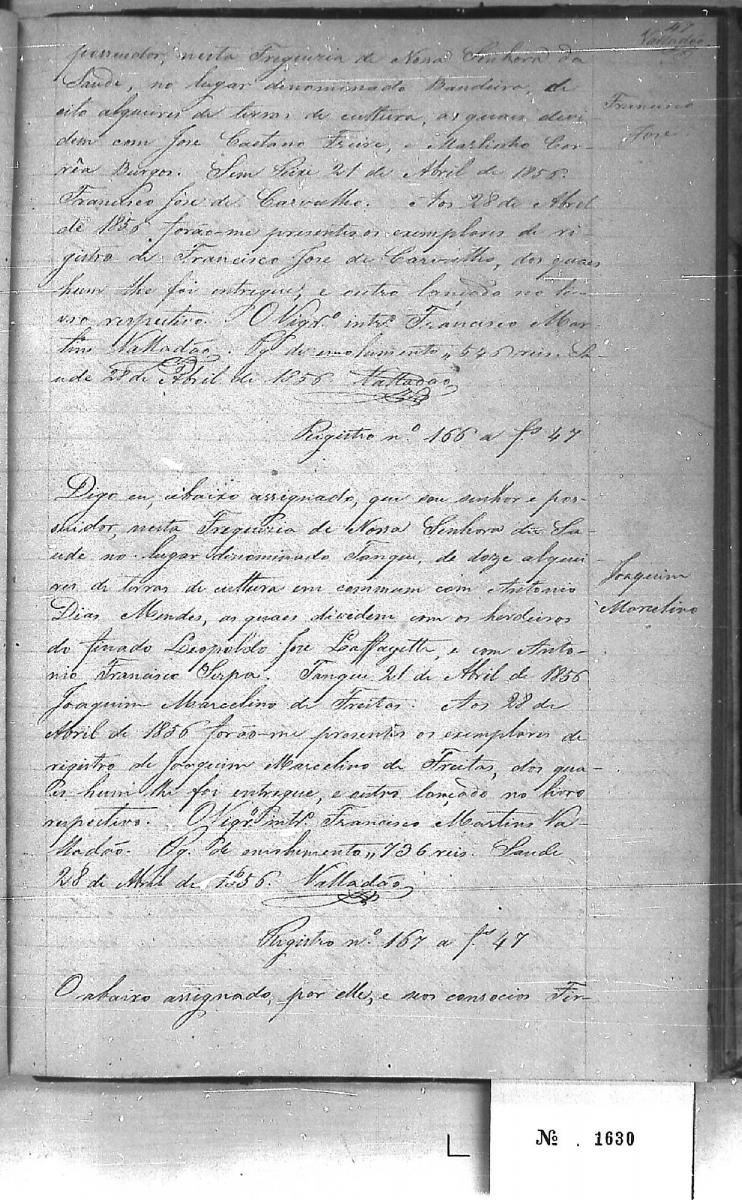 47
Valladão
possuidor, nesta Freguezia de Nossa Senhora da
Saude, no lugar denominado Bandeira, de
oito alqueires de terras de cultura, as quaes divi-
dem com José Caetano Freire, e Martinho Cor-
rêa Burgos. Sem Peixe 21 de Abril de 1856.
Francisco José de Carvalho. Aos 28 de Abril
de 1856 forão-me presentes os exemplares de re-
gistro de Francisco José de Carvalho, dos quaes
hum lhe foi entregue, e outro lançado no li-
vro respectivo. O Vigrº intrº Francisco Mar-
tins Valladão. Pg. de emolumento, 546 reis. Sa-
ude 28 de Abril de 1856. Valladão
Francisco
José
Registro nº 166 a fs 47
Digo eu, abaixo assignado, que sou senhor e pos-
suidor, nesta Freguezia de Nossa Senhora da Sa-
ude no lugar denominado Tanque, de doze alquei-
res de terras de cultura em commum com Antonio
Dias Mendes, as quaes dividem com os herdeiros
do finado Leopoldo José Laffayette, e com Anto-
nio Francisco Serpa. Tanque 21 de Abril de 1856
Joaquim Marcelino de Freitas. Aos 28 de
Abril de 1856 forão-me presentes os exemplares de
registro de Joaquim Marcelino de Freitas, dos qua-
es hum lhe foi entregue, e outro lançado no livro
respectivo. O Vigrº intrº Francisco Martins Va-
lladão. Pg. de emolumento, 736 reis. Saude
28 de Abril de 1856. Valladão
Joaquim
Marcelino
Registro nº 167 a fs 47
O abaixo assignado, por elle, e seos consocios Fir-
№ . 1630